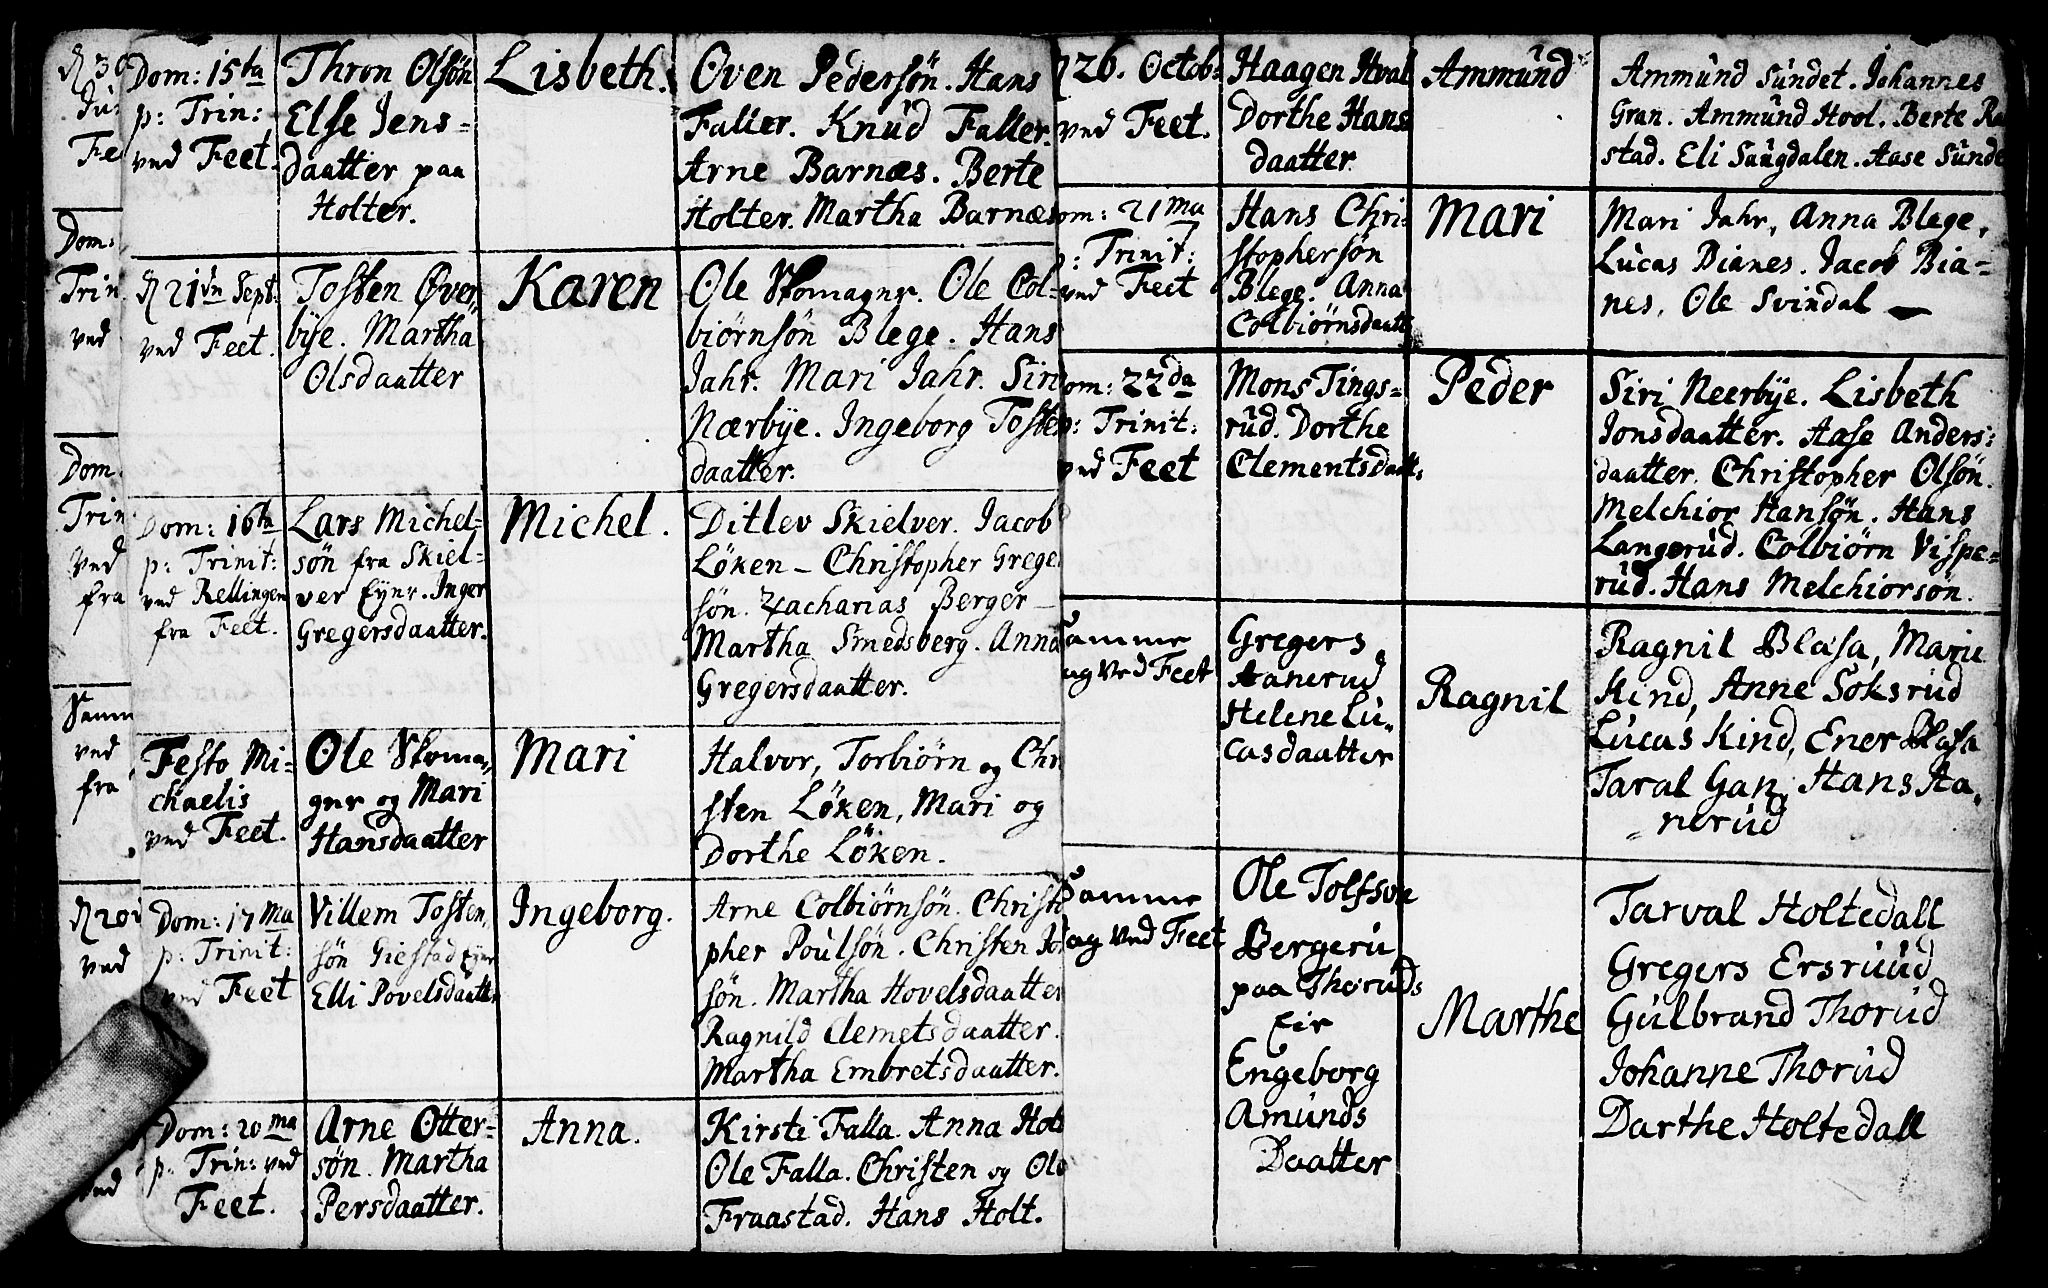 Dom: 15ta
p: Trin:
ved Feet.
Thron Olsøn
Else Jens-
daatter paa
Holter.
Lisbeth.
Oven Pedersøn. Hans
Faller. Knud Faller.
Arne Barnæs. Berte
Holter. Martha Barnæs
21de Sept.
ved Feet.
Tosten Øver,,
bye. Martha
Olsdaatter
Karen
Ole Skomager. Ole Col-
biørnsøn Blege. Hans
Jahr. Mari Jahr. Siri
Nærbye. Ingeborg Tosten
daatter.
Dom: 16ta
p: Trinit:
ved Rellingen
fra Feet.
Lars Michel-
søn fra Skiel-
ver Eyer. Inger
Gregersdaatter.
Michel.
Ditlev Skielver. Jacob
Løken - Christopher Greger
søn. Zacharias Berger -
Martha Smedsberg. Anna
Gregersdaatter.
Festo Mi-
chaelis
ved Feet.
Ole Skoma,,
ger og Mari
Hansdaatter
Mari
Halvor, Torbiørn og Chri
sten Løken, Mari og
Dorthe Løken.
Dom: 17ma
p: Trinit:
ved Feet
Villem Tosten,,
søn Giestad Eyer
Elli Povelsdaatter
Ingeborg.
Arne Colbiørnsøn. Christo
pher Poulsøn. Christen
søn. Martha Hovelsdaatter
Ragnild Clemetsdaatter.
Martha Embretsdaatter.
Dom: 20ma
p: Trin: ved
Feet.
Arne Otter-
søn. Martha
Persdaatter.
Anna.
Kirsti Falla. Anna Holt
Ole Falla. Christen og Ole
Fraastad. Hans Holt.
26. Octob:
ved Feet.
Haagen Hval
Dorthe Hans
daatter.
Ammund
Ammund Sundet. Johannes
Gran. Ammund Hool. Berte Ra
stad. Eli Saugdalen. Aase Sunde
Dom: 21ma
p: Trinit:
ved Feet
Hans Chri-
stophersøn
Blege. Anna
Colbiørnsdaatt
Mari
Mari Jahr, Anna Blege,
Lucas Dianes. Jacob Bia-
nes, Ole Svindal -
Dom: 22da
p: Trinit:
ved Feet
Mons Tings-
rud. Dorthe
Clementsdaatt.
Peder
Siri Neerbye. Lisbeth
Jonsdaatter. Aase Anders:
daatter. Christopher Olsøn.
Melchior Hansøn. Hans
Langerud. Colbiørn Vispe-
rud. Hans Melchiorsøn.
Samme
Dag ved Feet
Gregers
Aanerud
Helene Lu-
casdaatter
Ragnil
Ragnil Blasa, Marie
Kind, Anne Soksrud
Lucas Kind, Ener Blasa
Taral Gan, Hans Aa,
,, nerud
Samme
Dag ved Feet
Ole Tolfson
Bergeru
paa Thoruds
Eir
Engeborg
Amunds
Daatter
Marthe
Tarval Holtedall
Gregers Ersruud
Gulbrand Thorud
Johanne Thorud
Darthe Holtedall